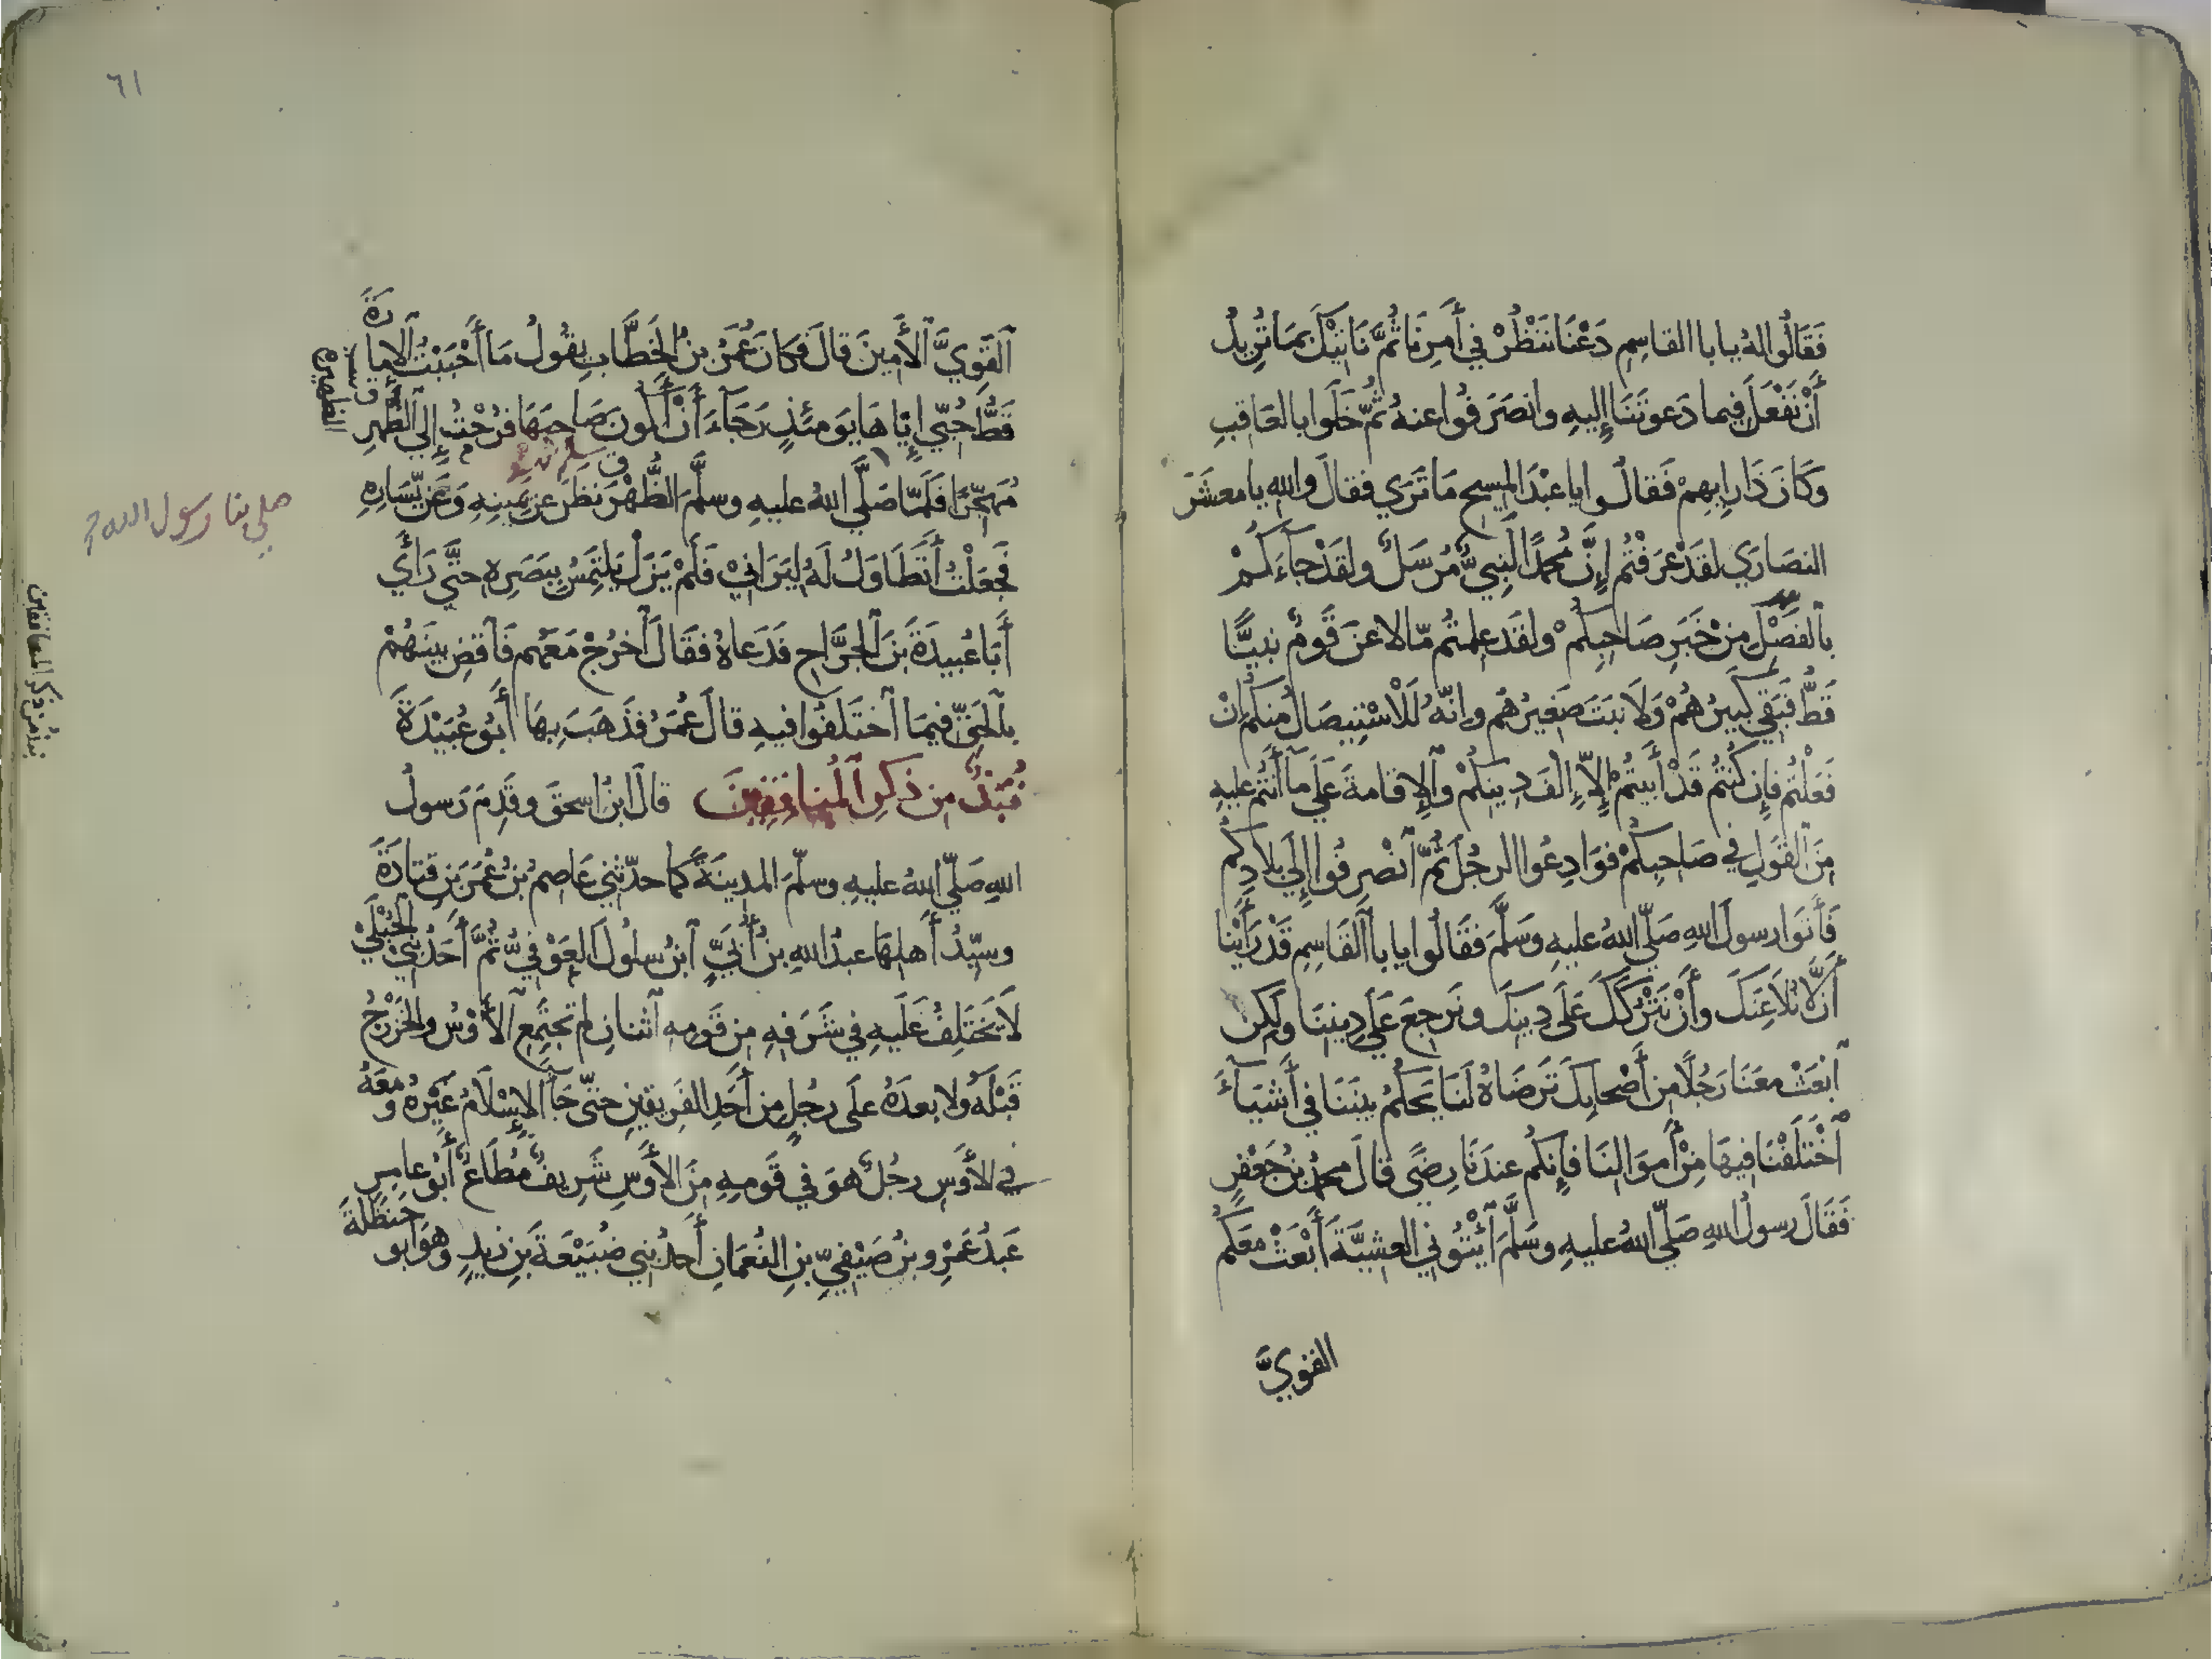 فَقَالُوا لهُ يا باا القاسِمِ دَعْنَا نَنْظُرْ فِي أَمْرِنَا ثُمَّ نَاتِيْكَ بِمَا تُرِيدُ
أَنْ نَفْعَلَ فيما دَعوتَنَا إليهِ وانصَرَفُوا عنهُ ثُمَّ خَلَوا بالعَاقِبِ
وَكَانَ ذَا رايِهِمْ فَقالُوا يا عبْدَ المسِيحِ مَا تَرَي فقالَ والله يا معشَرَ
النصَارَي لقَدْ عَرَفْتُم إنَّ مُحَمَّدًا لَنَبِيٌّ مُرْسَلٌ ولقَدْ جآءَكُمْ
بالفَصْلِ مِنْ خَبَرِ صَاحِبِكُمْ ولقَد عِلمتُم مّا لاعَنَ قَومٌ نبيًّا
قَطُّ فَبَقِي كَبيرُهُمْ وَلَا نبَتَ صَغيرُهُم وانّهُ لَلْاسْتِيصَالُ مِنكُم إنْ
فَعَلْتُم فإن كُنتُم قَدْ أَبيتُمْ إلاَّ إلْفَ دِينِكُمْ وآلإِقامةَ عَلَي مآ أنتُم عليهِ
مِنَ القَولِ في صَاحِبِكُمْ فوَادِعُوا الرجُلَ ثُمَّ آنْصَرِفُوا إلَي بِلَادِكُم
فَأتَوا رسولَ اللهِ صَلَّي اللهُ عليهِ وَسَلَّمَ فَقَالُوا يا باا القَاسِمِ قَدْ رَأَيْنا
أَنْ لَّا نُلَاعِنَكَ وأَنْ نَتْرُكَكَ عَلَى دِينِكَ ونَرجِعَ عَلَي دِينِنَا ولَكِن
آبْعَثْ معَنَا رَجُلًا مِن أَصْحابِكَ تَرضَاهُ لَنَا يَحكُمُ بينَنَا في أَشيَآءَ
آخْتَلَفْنَا فيهَا مِنْ أَموَالِنَا فإنكُم عندَنَا رِضًي قالَ محمَّدُ بنُ جَعْفَرٍ
فَقَالَ رسولُ اللهِ صَلَّي اللهُ عليهِ وسَلَّمَ آئْتُونِي العشِيَّةَ أَبْعَثْ مَعَكُم
القويَّ
٦١
آلقَوِيَّ آلأَمِينَ قالَ فَكانَ عُمَرُ بنُ الخَطَّابِ يقُولُ مَا أَحْبَبْتُ الإمارَةَ
قَطُّ حُبِّي إِيَّاهَا يَومئذٍ رَجَآءَ أَنْ أَكُونَ صَاحِبَهَا فرُحْتُ إلي الظُّهْرِ
مُهَجِّرًا فَلَمَّا صَلَّي اللهُ عليهِ وسلَّمَ الظُّهْرَ نظَرَ عن يَمينِهِ وَعَن يَّسَارِهِ
صلي بنا رسول الله
فَجعَلْتُ أَتَطَاوَلُ لَهُ لِيَرَانِيْ فَلَمْ يَزَل يَلتَمِسُ بِبَصَرِهِ حتَّي رَأَي
أَبَا عُبيدَةَ بنَ آلجَرَّاحِ فدَعاهُ فقَالَ آخرُجْ مَعَهُم فَآقضِ بينَهُمْ
بآلحَقِّ فيمَا آختَلَفُوا فيهِ قالَ عُمَرُ فذَهَبَ بِهَا أَبُو عُبَيْدَةَ
نُبَذٌ مِن ذكرِ آلمُنافِقِينَ قالَ ابنُ اسحقَ وقَدِمَ رَسولُ
نبذ من ذكر المنافقين
اللهِ صَلَّي اللهُ عليهِ وسلَّمَ المدِينَةَ كما حدّثني عَاصِمُ بنُ عُمَرَ بنِ قَتادَةَ
وسيّدُ أَهلِهَا عبدُ اللهِ بنُ أُبَيٍّ آبنُ سلُولَ العَوْفِيُّ ثُمَّ أَحَدُ بَنِي الحُبْلَيْ
لَا يَختَلِفُ عَلَيهِ في شَرَفِهِ مِن قَومِهِ آثنانِ لم تجتَمِعِ آلأَوْسُ والخَزْرَجُ
قَبْلَهُ ولا بعدَهُ علَى رجُلٍ مِن أحَدِ الفَرِيقَينِ حتّى جَآ الإسْلَامُ غَيْرِهِ ومَعَهُ
في الأَوسِ رجُلٌ هوَ في قَومِهِ مِنَ الأَوسِ شَرِيفٌ مُطَاعٌ أَبُو عامِرٍ
عَبدُ عَمْرِو بنُ صَيْفِيِّ بنِ النُعمَانِ أَحدُ بني ضُبَيْعَةَ بنِ زيدٍ وهوَ أبو حَنظَلَةَ